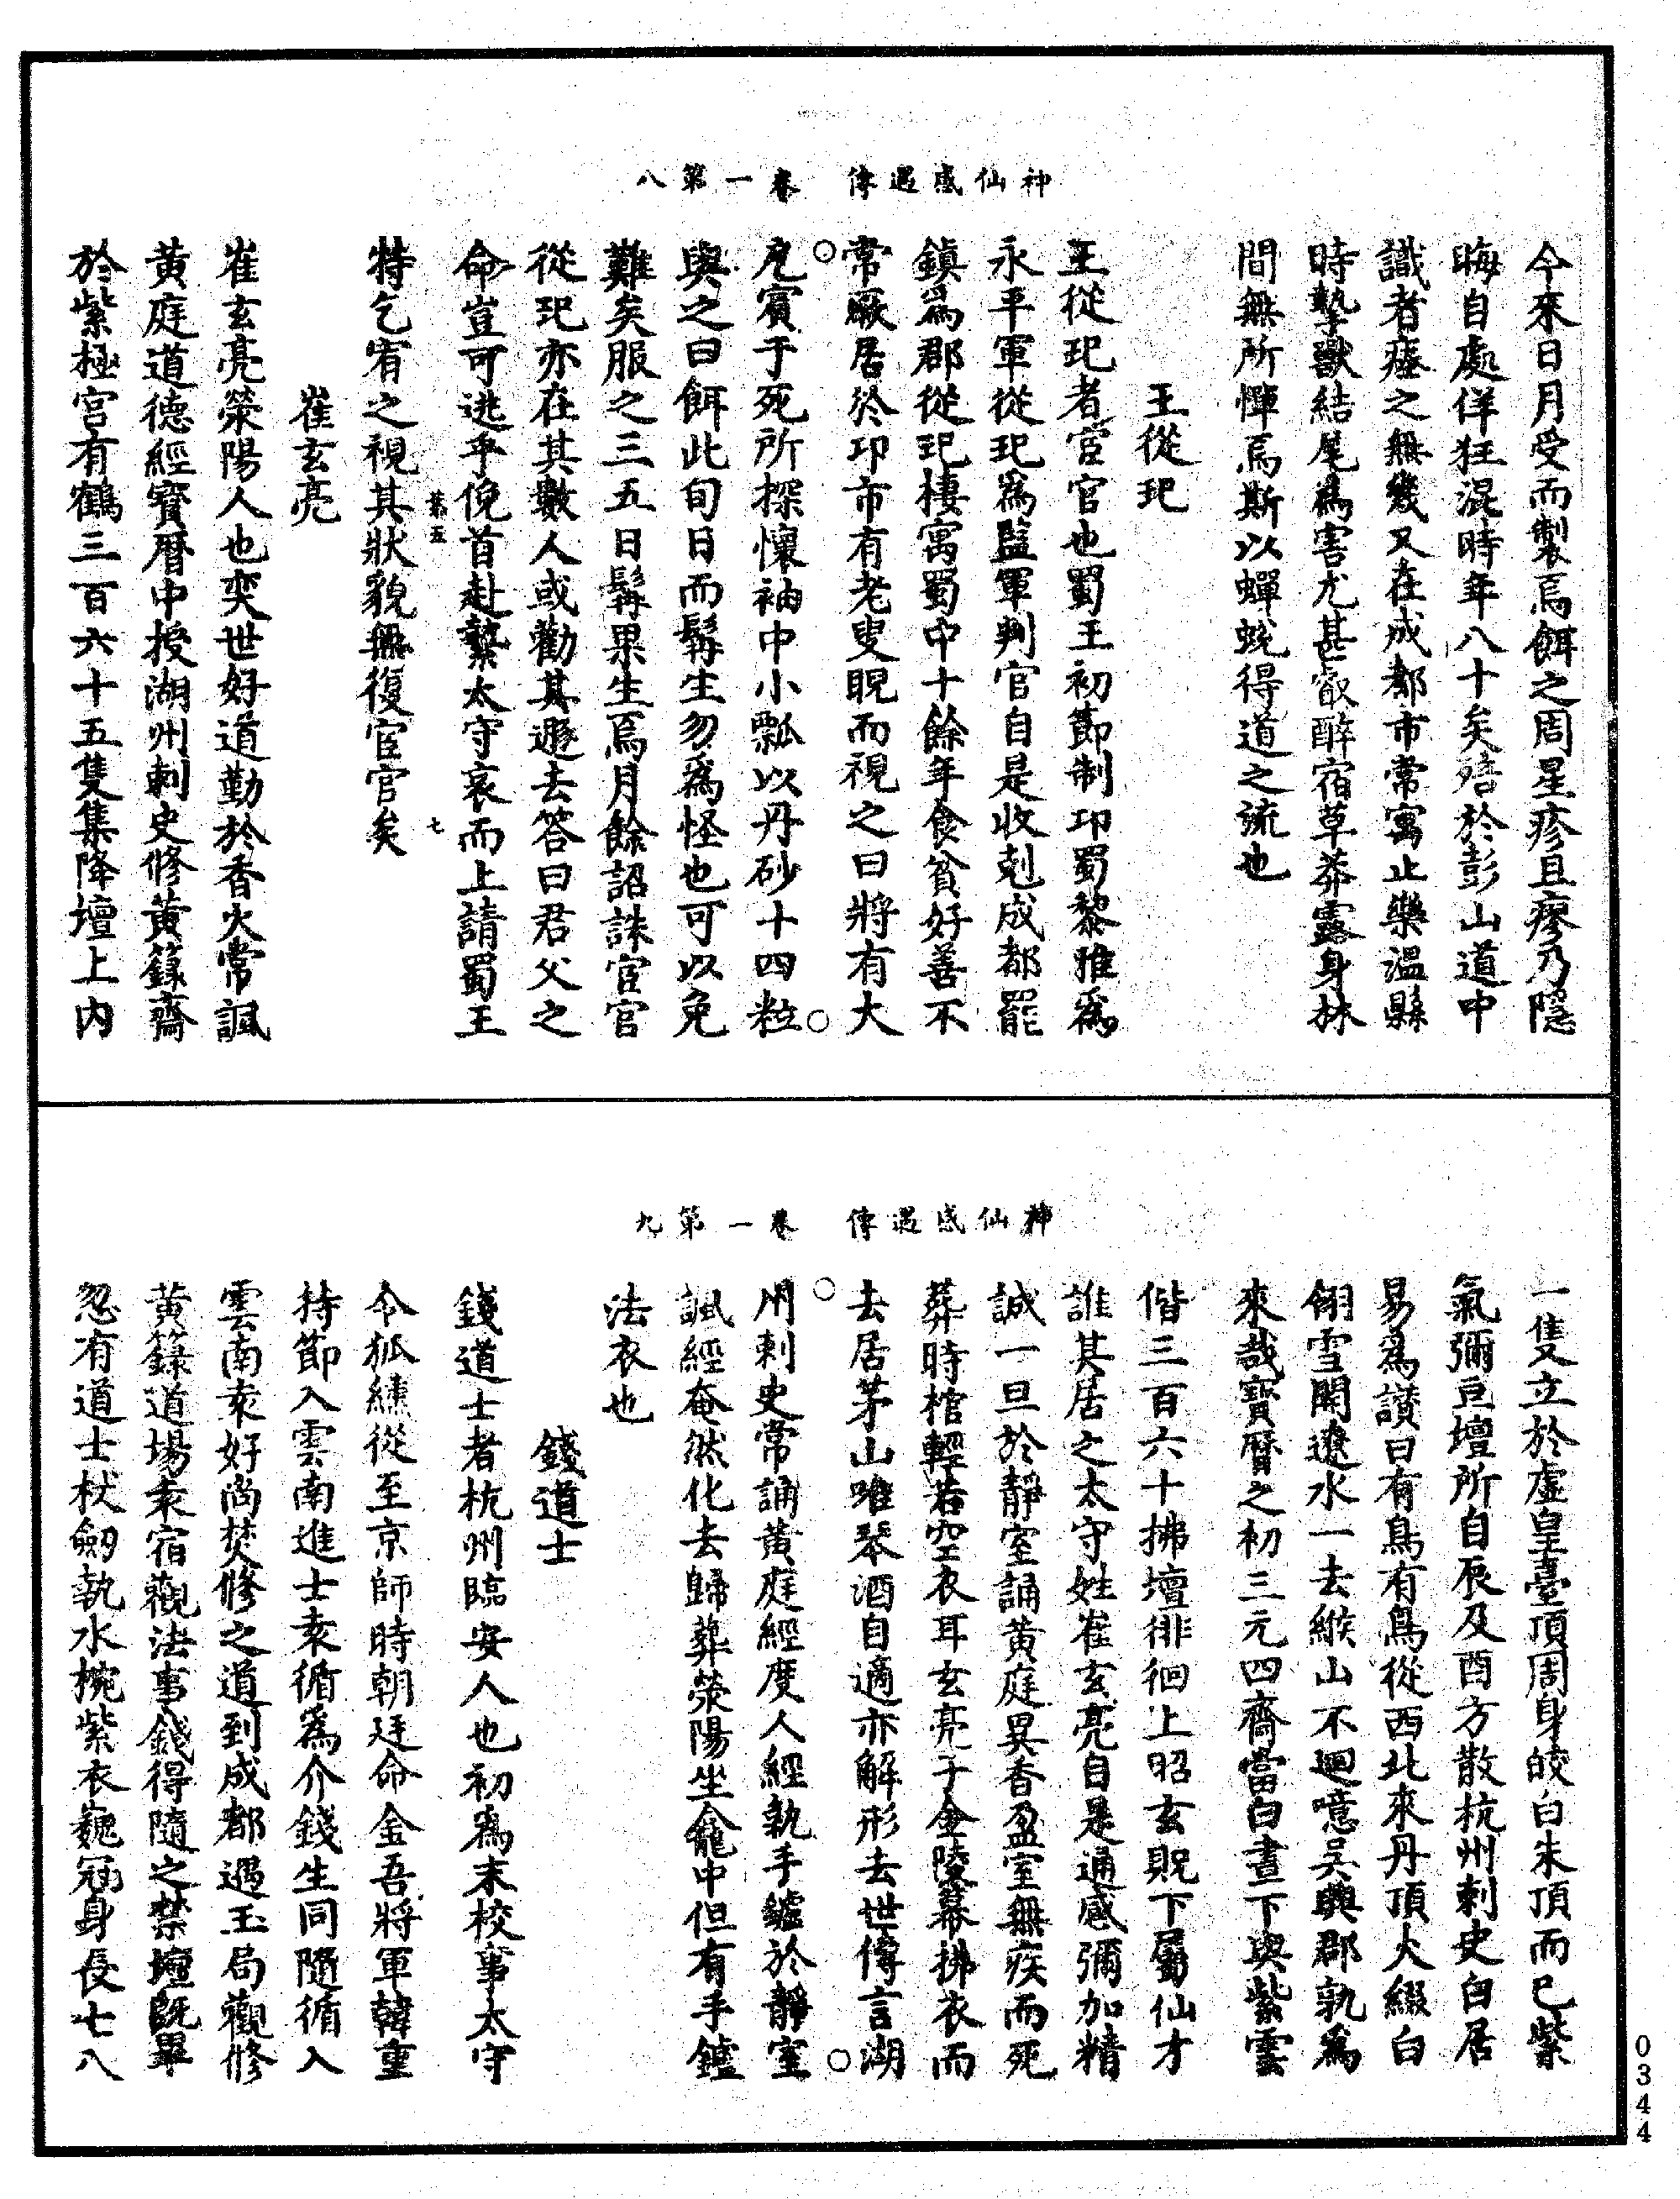 神仙感遇傳　卷一第八
今來日月受而製焉餌之周星疹且瘳乃隱
晦自處佯狂混時年八十矣殕於彭山道中
識者瘞之無幾又在成都市常寓止樂溫縣
時摯獸結尾為害尤甚叡醉宿草莽露身林
間無所憚焉斯以蟬蛻得道之流也
王從玘
王從玘者宦官也蜀王初節制卭蜀黎雅為
永平軍從玘為監軍判官自是收剋成都罷
鎮為郡從玘棲寓蜀中十餘年食貧好善不
常厥居於卭市有老叟睨而視之曰將有大
㐫賓于死所探懷袖中小瓢以丹砂十四粒
與之曰餌此旬日而髯生勿為怪也可以免
難矣服之三五日髯果生焉月餘詔誅宦官
從玘亦在其數人或勸其遯去答曰君父之
命豈可逃乎俛首赴縶太守哀而上請蜀王
葉五　七
特乞宥之視其狀貌無復宦官矣
崔玄亮
崔玄亮滎陽人也奕世好道勤於香火常諷
黃庭道德經寶曆中授湖州刺史修黃籙齋
於紫極宮有鶴三百六十五隻集降壇上內
神仙感遇傳　卷一第九
一隻立於虛皇臺頂周身皎白朱頂而已紫
氣彌亘壇所自辰及酉方散杭州刺史白居
易為讃曰有鳥有鳥從西北來丹頂火綴白
翎雪開遼水一去緱山不迴噫吳興郡孰為
來哉寶曆之初三元四齋當白晝下與紫雲
偕三百六十拂壇徘徊上昭玄貺下屬仙才
誰其居之太守姓崔玄亮自是通感彌加精
誠一旦於靜室誦黃庭異香盈室無疾而死
葬時棺輕若空衣耳玄亮子金陵幕拂衣而
去居茅山唯琴酒自適亦解形去世傳言湖
州刺史常誦黃庭經度人經執手鑪於靜室
諷經奄然化去歸葬滎陽坐龕中但有手鑪
法衣也
錢道士
錢道士者杭州臨安人也初為末校事太守
令狐纁從至京師時朝廷命金吾將軍韓重
持節入雲南進士袁循為介錢生同隨循入
雲南袁好尚焚修之道到成都遇玉局觀修
黃籙道場袁宿觀法事錢得隨之禁壇旣畢
忽有道士杖劒執水椀紫衣巍冠身長七八
0344